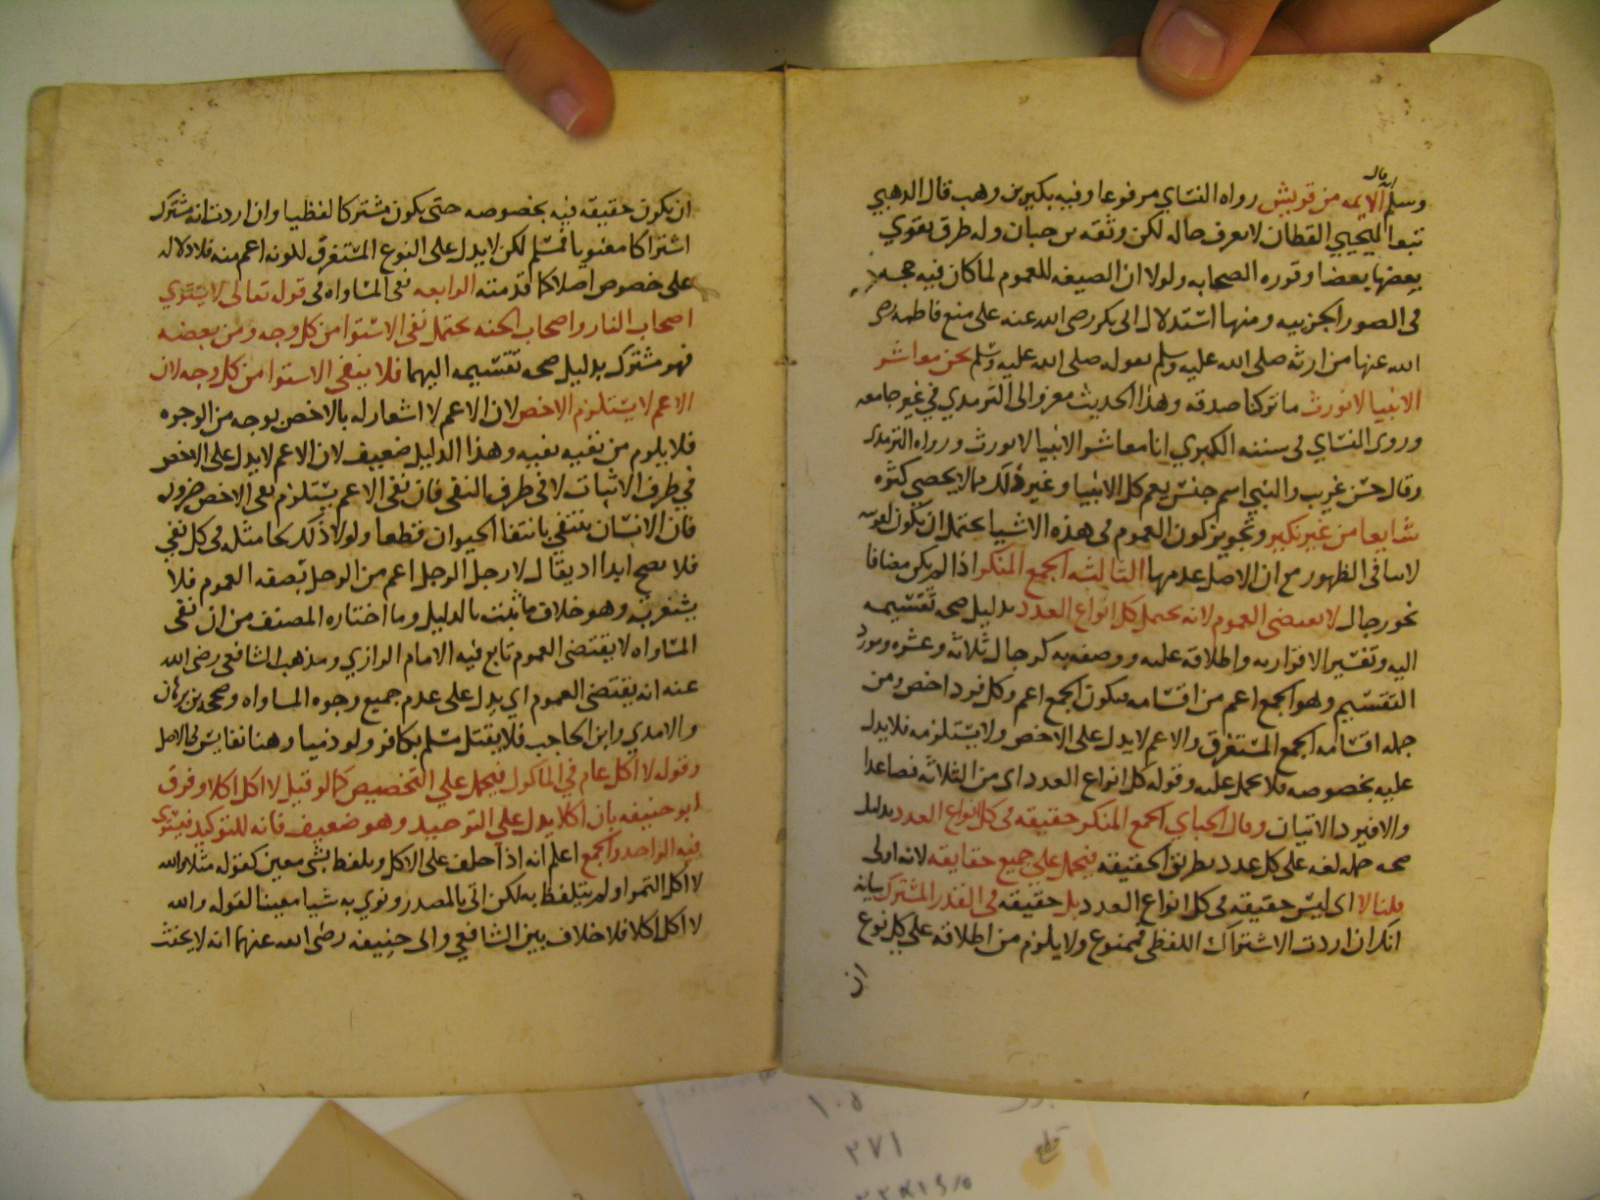 قال
وسلم الايمه من قريش رواه النساي مرفوعا وفيه بكير بن وهب قال الذهبي
تبعا ليحيي القطان لا يعرف حاله لكن وثقه بن حبان وله طرق يقوي
بعضها بعضا وقوره الصحابه ولولا ان الصيغه للعموم لما كان فيه حجه
في الصور الجزييه ومنها استدلال ابي بكر رضي الله عنه على منع فاطمه رضي
الله عنها من ارثه صلى الله عليه وسلم بقوله صلى الله عليه وسلم نحن معاشر
الانبيا لا نورث ما تركنا صدقه وهذا الحديث معزو الى الترمذي في غير جامعه
وروى النساي في سننه الكبري انا معاشر الانبيا لا نورث ورواه الترمذي
وقال حسن غريب والنبي اسم جنس يعم كل الانبيا وغير ذلك مما لا يحصي كثره
شايعا من غير نكير وتجويز كون العموم في هذه الاشيا يحتمل ان يكون لقرينه
لا ينافي الظهور مع ان الاصل عدمها الثالثه الجمع المنكر اذا لم يكن مضافا
نحو رجال لا يقتضي العموم لانه يحتمل كل انواع العدد بدليل صحه تقسيمه
اليه وتفسير الاقرار به واطلاقه عليه ووصفه به كرجال ثلاثه وعشره ومورد
التقسيم وهو الجمع اعم من اقسامه فيكون الجمع اعم وكل فرد اخص ومن
جمله اقسامه الجمع المستغرق والاعم لا يدل على الاخص ولا يستلزمه فلا يدل
عليه بخصوصه فلا يحمل عليه وقوله كل انواع العدد اى من الثلاثه فصاعدا
والا فيرد الاثنان وقال الجباي الجمع المنكر حقيقه في كل انواع العدد بدليل
صحه حمله لغه على كل عدد بطريق الحقيقه فيحمل علي جميع حقايقه لانه اولى
قلنا لا اى ليس حقيقه في كل انواع العدد بل حقيقه في القدر المشترك بيانه
انك ان اردت الاشتراك اللفظي فممنوع ولا يلزم من اطلاقه على كل نوع
ان
ان يكون حقيقه فيه بخصوصه حتى يكون مشتركا لفظيا وان اردت انه مشترك
اشتراكا معنويا فمسلم لكن لا يدل على النوع المستغرق لكونه اعم منه فلا دلاله
على خصوص اصلا كما قدمته الرابعه نفي المساواه في قوله تعالى لا يستوي
اصحاب النار واصحاب الجنه يحتمل نفي الاستوا من كل وجه ومن بعضه
فهو مشترك بدليل صحه تقسيمه اليهما فلا ينفي الاستوا من كل وجه لان
الاعم لا يستلزم الاخص لان الاعم لا اشعار له بالاخص بوجه من الوجوه
فلا يلزم من نفيه نفيه وهذا الدليل ضعيف لان الاعم لا يدل على الاخص
في طرف الاثبات لا في طرف النفي فان نفي الاعم يستلزم نفي الاخص ضروره
فان الانسان ينتفي بانتفا الحيوان قطعا ولولا ذلك لجا مثله في كل نفي
فلا يصح ابدا اد يقال لا رجل الرجل اعم من الرجل بصفه العموم فلا
يستغرق وهو خلاف ما ثبت بالدليل وما اختاره المصنف من ان نفي
المساواه لا يقتضي العموم تابع فيه الامام الرازي ومذهب الشافعي رضي الله
عنه انه يقتضي العموم اي يدل على عدم جميع وجوه المساواه وصححه بن برهان
والامدي وابن الحاجب فلا يقتل مسلم بكافر ولو ذميا وهنا نفايس في الاصل
وقوله لا اكل عام في الماكول فيحمل علي التخصيص كما لو قيل لا اكل اكلا وفرق
ابو حنيفه بان اكلا يدل علي التوحيد وهو ضعيف فانه للتوكيد فيستوي
فيه الواحد والجمع اعلم انه اذا حلف على الاكل وتلفظ بشي معين كقوله مثلا والله
لا اكل التمر او لم يتلفظ به لكن اتى بالمصدر ونوي به شيا معينا لقوله والله
لا اكل اكلا فلا خلاف بين الشافعي وابي حنيفه رضي الله عنهما انه لا يحنث
١٠٥
٢٧١